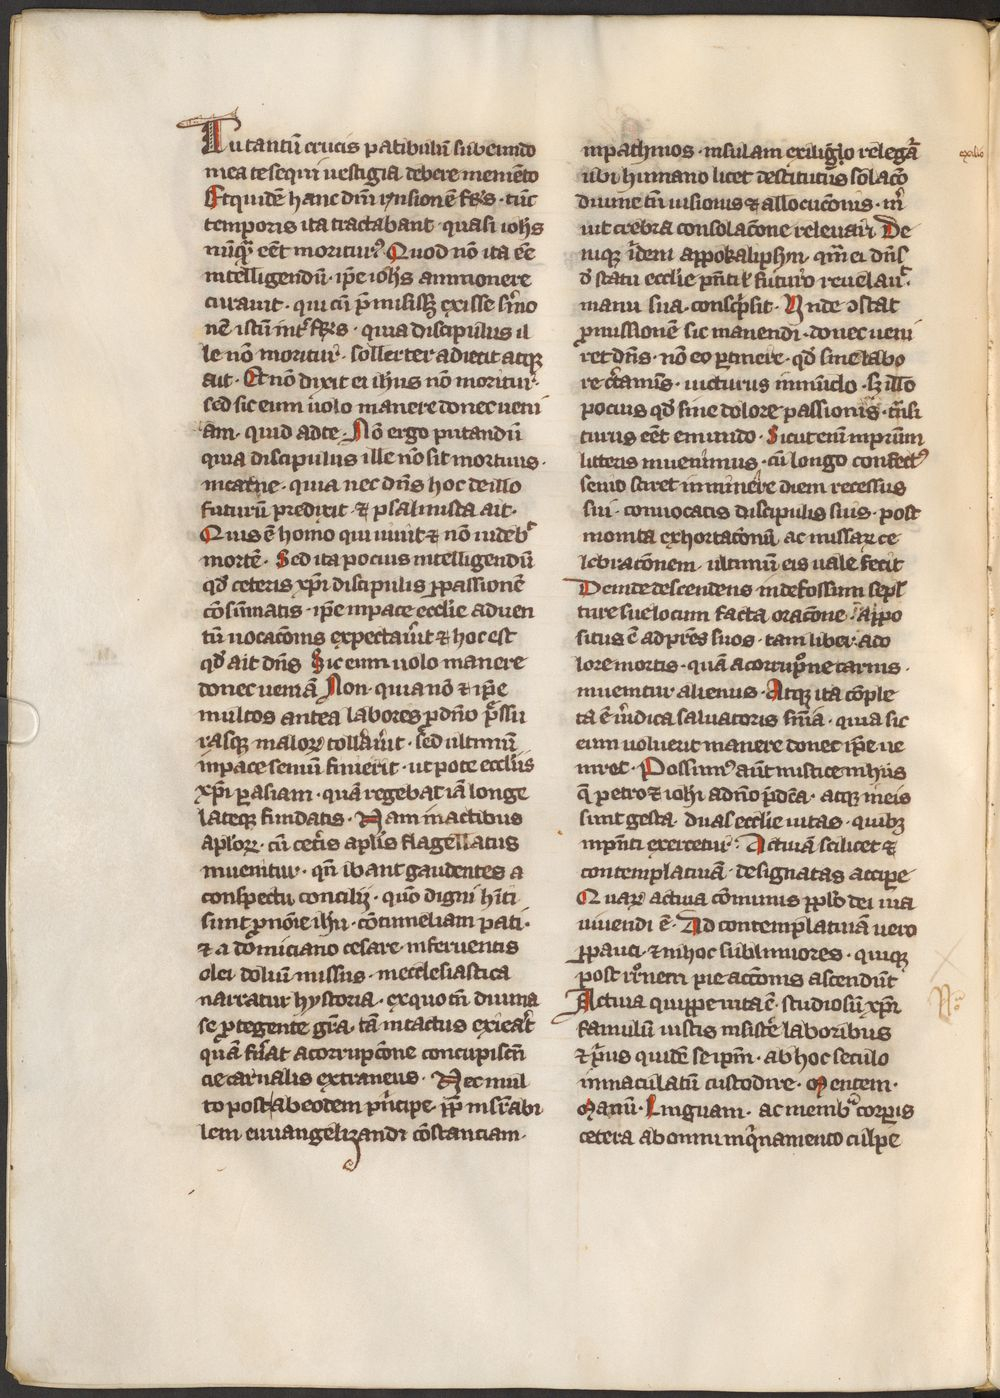 Tu tantū crucis patibulū subeundo
mea te sequi uestigia debere memēto
Et quidē hanc dn̄i ɿnsionē fr̄s · tūc
temporis ita tractabant · quasi ioh̄s
nūqᷓ eēt moritur᷒ Quod nō ita eē
intelligendū · ip̄e ioh̄s ammonere
curauit · qui cū p̄misissꝫ exisse s̄mo
nē istū int̄ fr̄s · quia discipulus il
le nō moritur · sollerter adiecit atqꝫ
ait · Et nō dixit ei ih̄us nō moritur ·
sed sic eum uolo manere donec ueni
am · quid ad te · Nō ergo putandū
quia discipulus ille nō sit mortuus ·
in carne · quia nec dn̄s hoc de illo
futurū predixit · ⁊ psalmista ait ·
Quis ē homo qui uiuit ⁊ nō uideb᷒
mortē · Sed ita pocius intelligendū
qd̄ ceteris xp̄i discipulis ꝑ passionē
cōsūmatis · ip̄e in pace eccl̄ie aduen
tū uocacōnis expectau̇it ⁊ hoc est
qd̄ ait dn̄s Sic eum uolo manere
donec ueniā Non · quia nō ⁊ ip̄e
multos antea labores ꝓ dn̄o p̄ssu
rasqꝫ maloꝝ tollāuit · Sed ultimū
in pace seniū finierit · utpote eccl̄iis
xp̄i ꝑ asiam · quā regebat iā longe
lateqꝫ fundatis · Nam in actibus
aptl̄oꝝ · cū cet̄is apl̄is flagellatus
inuenitur · qn̄ ibant gaudentes a
conspectu concilij · quō digni hīti
sunt ꝓ nōie ih̄u · cōtumeliam pati ·
⁊ a domiciano cesare · in feruentis
olei doliū missus · in ecclesiastica
narratur hystoria · ex quo tn̄ diuina
se ꝓtegente gr̄a · tā intactus exieat̄
quā fūat a corrupcōne concupiscē
cie carnalis extraneus · Nec mul
to post ab eodem pn̄cipe · ꝓp̄ insūabi
lem euuangelizandi cōstanciam ·
in pathmos · insulam exilio relegať
ubi humano licet destitutus solacō
diuine tn̄ uisionis ⁊ allocucōnis · m̄
uit crebra consolacōne releuari De
niqꝫ ibidem appokalipsyn · quā ei dn̄s
d̄ statu eccl̄ie pn̄ti ł futuro reuelau᷒ ·
manu sua · conscp̄sit · Unde ɔstat
ꝓmissionē sic manendi · donec ueni
ret dn̄s · nō eo ꝑtinere · qd̄ sine labo
re cˈtaminis · uicturus in mūdo · sꝫ illo
pocius qd̄ sine dolore passionis · trāsi
turus eēt e mundo · Sicut enī in pr̄um
litteris inuenimus · cū longo confectꝰ
senio sciret inminere diem recessus
sui · conuocatis discipulis suis · post
monita exhortacōnū ac missaꝝ ce
lebracōnem ultimū eis uale fecit
Deinde descendens in defossum sepl̄
ture sue locum facta oracōne · appo
situs ē ad pr̄es suos · tam liber a do
lore mortis · quā a corrupcōne carnis ·
inuenitur alienus · Atqꝫ ita cōple
ta ē ūidica saluatoris snīa · quia sic
eum uoluerit manere donec ip̄e ue
niret · Possumꝰ aūt mistice in hiis
q̄ petro ⁊ ioh̄i a dn̄o p̄dca · atqꝫ in eis
sunt gesta · duas eccl̄ie uitas · quibꝫ
in pn̄ti exercetur · Actiuā scilicet ⁊
contemplatiuā · designatas accipe
Quaꝝ actiua cōmunis ppl̄o dei uia
uiuendi ē · Ad contemplatiuā uero
ꝑpauci · ⁊ in hoc sublimiores · quiqꝫ
post ꝑfc̄onem pie accōnis ascendūt
Actiua quippe uita ē · studiosū xp̄i
famulū iustis insist̄e laboribus
⁊ pͥus quidē se ip̄m · ab hoc seculo
inmaculatū custodire · Mentem ·
Manū · Linguam · ac membᷓ corporis
cetera ab omni inqͥnamento culpe
exilio